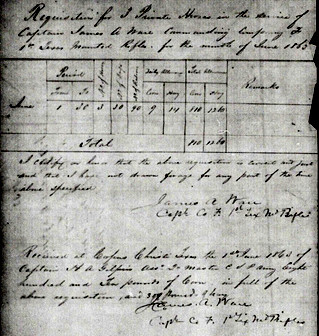 Requisition for 3 Private Horses in the service of
Captain James A Ware Commanding Company F
1st Texas Mounted Rifles for the month of June 1863
Period
Daily Allowance
Total Allowance
Remarks
From To
Corn Hay Corn Hay
June 1 30 3 30 90 9 14 810 1260
Total 810 1260
I certify on honor that the above requisition is correct and just
and that I have not drawn forage for any part of the time
above specified
James A Ware
Capt Co F. 1st Tex Mtd Rifles
Received at Corpus Christi Texas the 1st June 1863 of
Captain H A Gilpin Master C S Army Eight
hundred and Ten pounds of Corn in full of the
above requisition, and
James A. Ware
Capt Co F 1st Tex Mtd Rifles